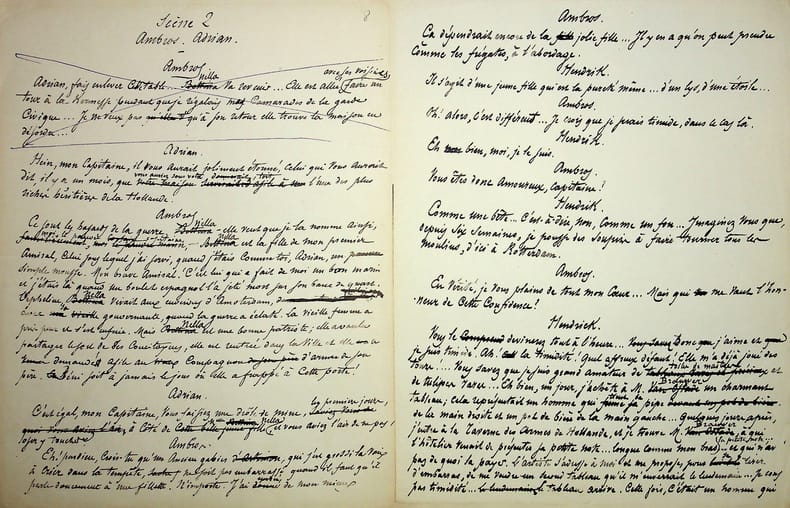 Scène 2
8
Ambros. Adrian.
Ambros
Adrian, fais enlever cette table. Nella va revenir... Elle est allée faire un
avec ses voisines,
tour à la Kermesse pendant que je régalais mes camarades de la garde
Civique... Je ne veux pas qu'à son retour elle trouve la maison en
désordre...
Adrian.
Hein, mon Capitaine, il vous aurait joliment étonné, celui qui vous aurait
dit, il y a un mois, que vous auriez sous votre toit l'une des plus
riches héritières de la Hollande
Ambros
Ce sont les hasards de la guerre. Nella - elle veut que je la nomme ainsi,
Nella est la fille de mon premier
Amiral, celui sous lequel j'ai servi, quand j'étais
simple mousse. Mon brave Amiral! C'est lui qui a fait de moi un bon marin
et j'étais là quand un boulet espagnol l'a jeté mort sur son banc de quart.
Orpheline, Nella vivait aux environs d'Amsterdam,
gouvernante, quand la guerre a éclaté. La vieille femme a
pris peur et s'est enfuie. Mais Nella est une bonne patriote; elle a voulu
partager le sort de ses concitoyens, elle est rentrée dans la ville et elle
demander asile au compagnon d'armes de son
père. Béni soit à jamais le jour où elle a frappé à cette porte!
Adrian.
C'est égal, mon Capitaine, vous faisiez une drôle de mine, les premiers jours,
à côté de cette
Ambros
Eh! pardieu, crois-tu qu'un ancien gabier, qui s'est grossi la voix
à crier dans la tempête, ne soit pas embarrassé quand il faut qu'il
parle doucement à une fillette. N'importe. J'ai fait de mon mieux
Ambros.
Ça dépendrait encore de la jolie fille... Il y en a qu'on peut prendre
comme les frégates, à l'abordage.
Hendrik.
Il s'agit d'une jeune fille qui est la pureté même... d'un lys, d'une étoile...
Ambros.
Oh! alors, c'est différent... Je crois que je serais timide, dans ce cas là.
Hendrik.
Eh bien, moi, je le suis.
Ambros
Vous êtes donc amoureux, capitaine!
Hendrik.
Comme une bête... C'est-à-dire, non, comme un fou... Imaginez vous que,
depuis six semaines, je pousse des soupirs à faire tourner tous les
moulins, d'ici à Rotterdam.
Ambros.
En vérité, je vous plains de tout mon cœur... Mais qui me vaut l'hon-
neur de cette confidence!
Hendrick.
Vous le devinerez tout à l'heure... donc j'aime et
je suis timide. Ah! la timidité! Quel affreux défaut! Elle m'a déjà joué des
tours... Vous savez que je suis grand amateur de toiles de maîtres
et de tulipes rares... Eh bien, un jour, j'achète à M. Brauwer un charmant
tableau; cela représentait un homme qui fume sa pipe
de la main droite et un pot de bière de la main gauche... Quelques jours après,
j'entre à la Taverne des Armes de Hollande, et je trouve M. Brauwer à qui
l'hôtelier venait de présenter sa petite note... longue comme mon bras... et qui n'avait
pas de quoi la payer. L'artiste s'adresse à moi et me propose, pour le tirer
d'embarras, de me vendre un second tableau qu'il m'enverrait le lendemain...
par timidité... le tableau arrive. Cette fois, c'était un homme qui